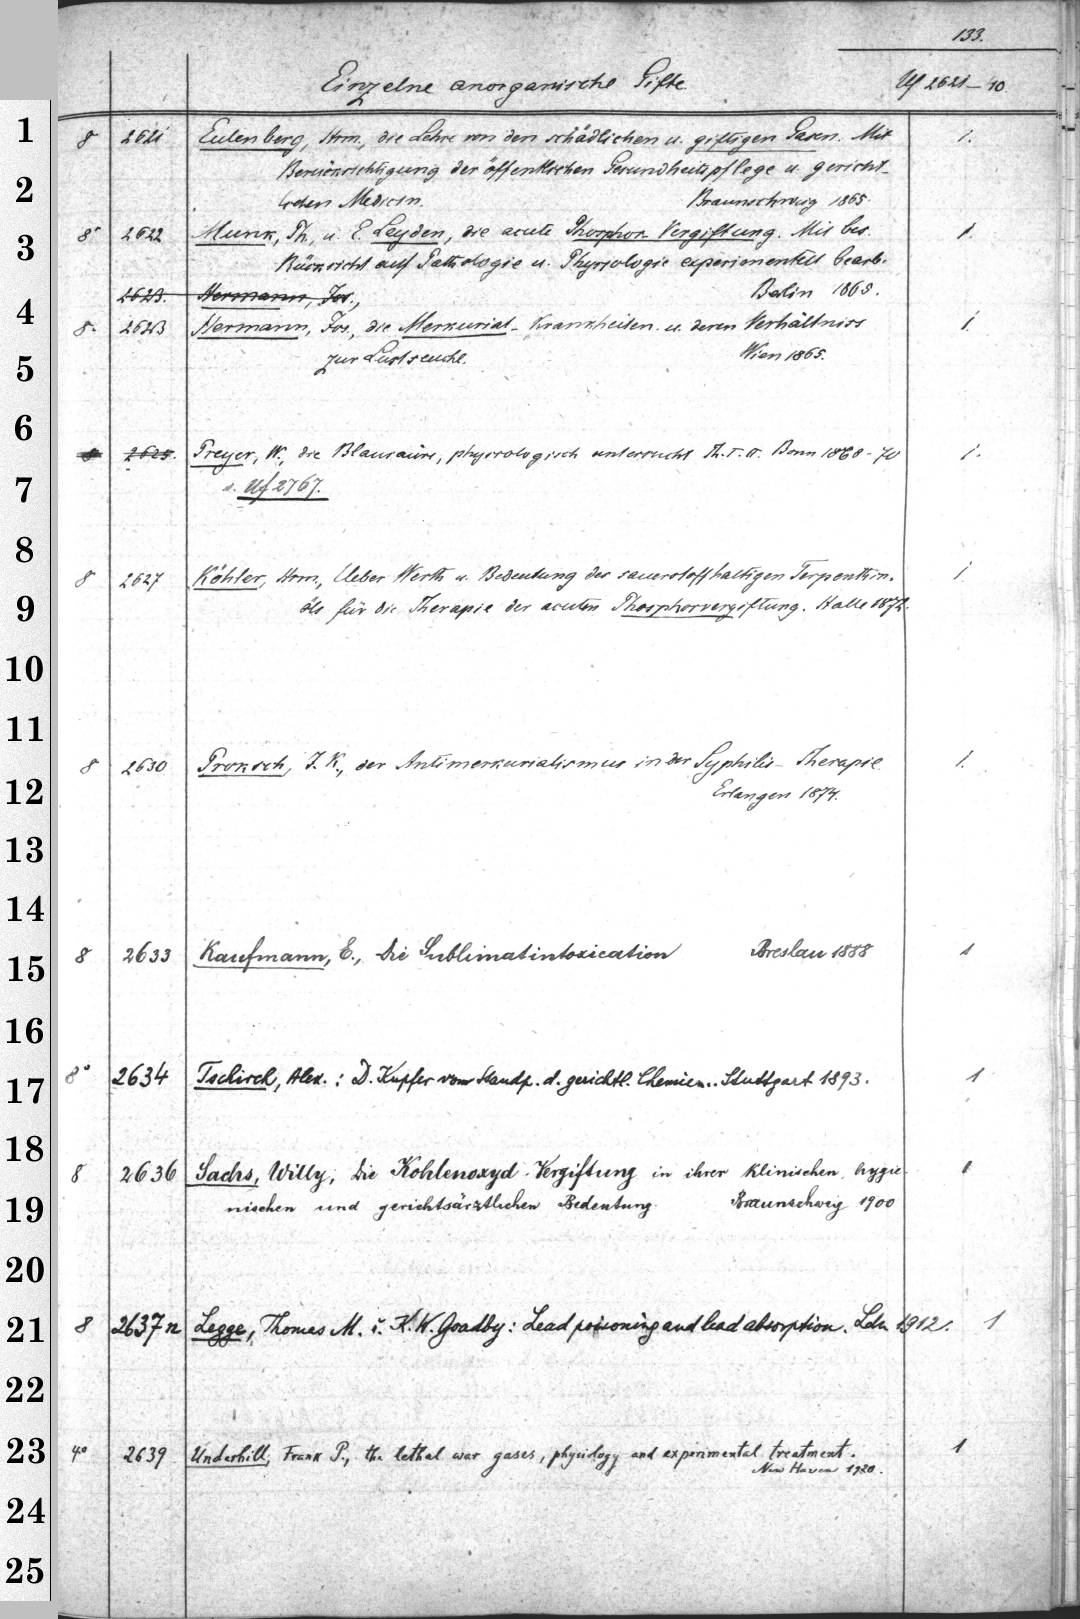 133.
Einzelne anorganische Gifte Uf 2621-40
1
8 2621 Eulenberg, Hrm., die Lehre von den schädlichen u. giftigen Gasen. Mit 1.
Berücksichtigung der öffentlichen Gesundheitspflege u. gericht-
2
lichen Medicin. Braunschweig 1865.
3
8° 2622 Munk, Ph., u. E. Leyden, die acute Phosphor-Vergiftung. Mit bes. 1.
Rücksicht auf Pathologie u. Physiologie experimentell bearb.
2623. Hermann, Jos., Berlin 1865.
4
8. 2623 Hermann, Jos., die Merkurial-Krankheiten u. deren Verhältniss 1.
zur Lustseuche. Wien 1865.
5
6
8 2625. Preyer, W., die Blausäure, physiologisch untersucht Th. I. II. Bonn 1868-70 1.
s. Uf 2767.
7
8
8 2627 Köhler, Hrm., Ueber Werth u. Bedeutung des sauerstoffhaltigen Terpenthin- 1.
9
öls für die Therapie der acuten Phosphorvergiftung. Halle 1872.
10
11
8 2630 Proksch, J. K., der Antimerkurialismus in der Syphilis-Therapie 1.
12
Erlangen 1874.
13
14
15
8 2633 Kaufmann, E., Die Sublimatintoxication Breslau 1888 1
16
17
8° 2634 Tschirch, Alex.: D. Kupfer vom Standp. d. gerichtl. Chemie.. Stuttgart 1893. 1
18
8 2636 Sachs, Willy, Die Kohlenoxyd-Vergiftung in ihrer klinischen, hygie- 1
19
nischen und gerichtsärztlichen Bedeutung. Braunschweig 1900
20
21
8 2637n Legge, Thomas M. i. K. W. Goadby: Lead poisoning and lead absorption. Ldn 1912. 1
22
23
4° 2639 Underhill, Frank P., the lethal war gases, physiology and experimental treatment. 1
New Haven 1920.
24
25